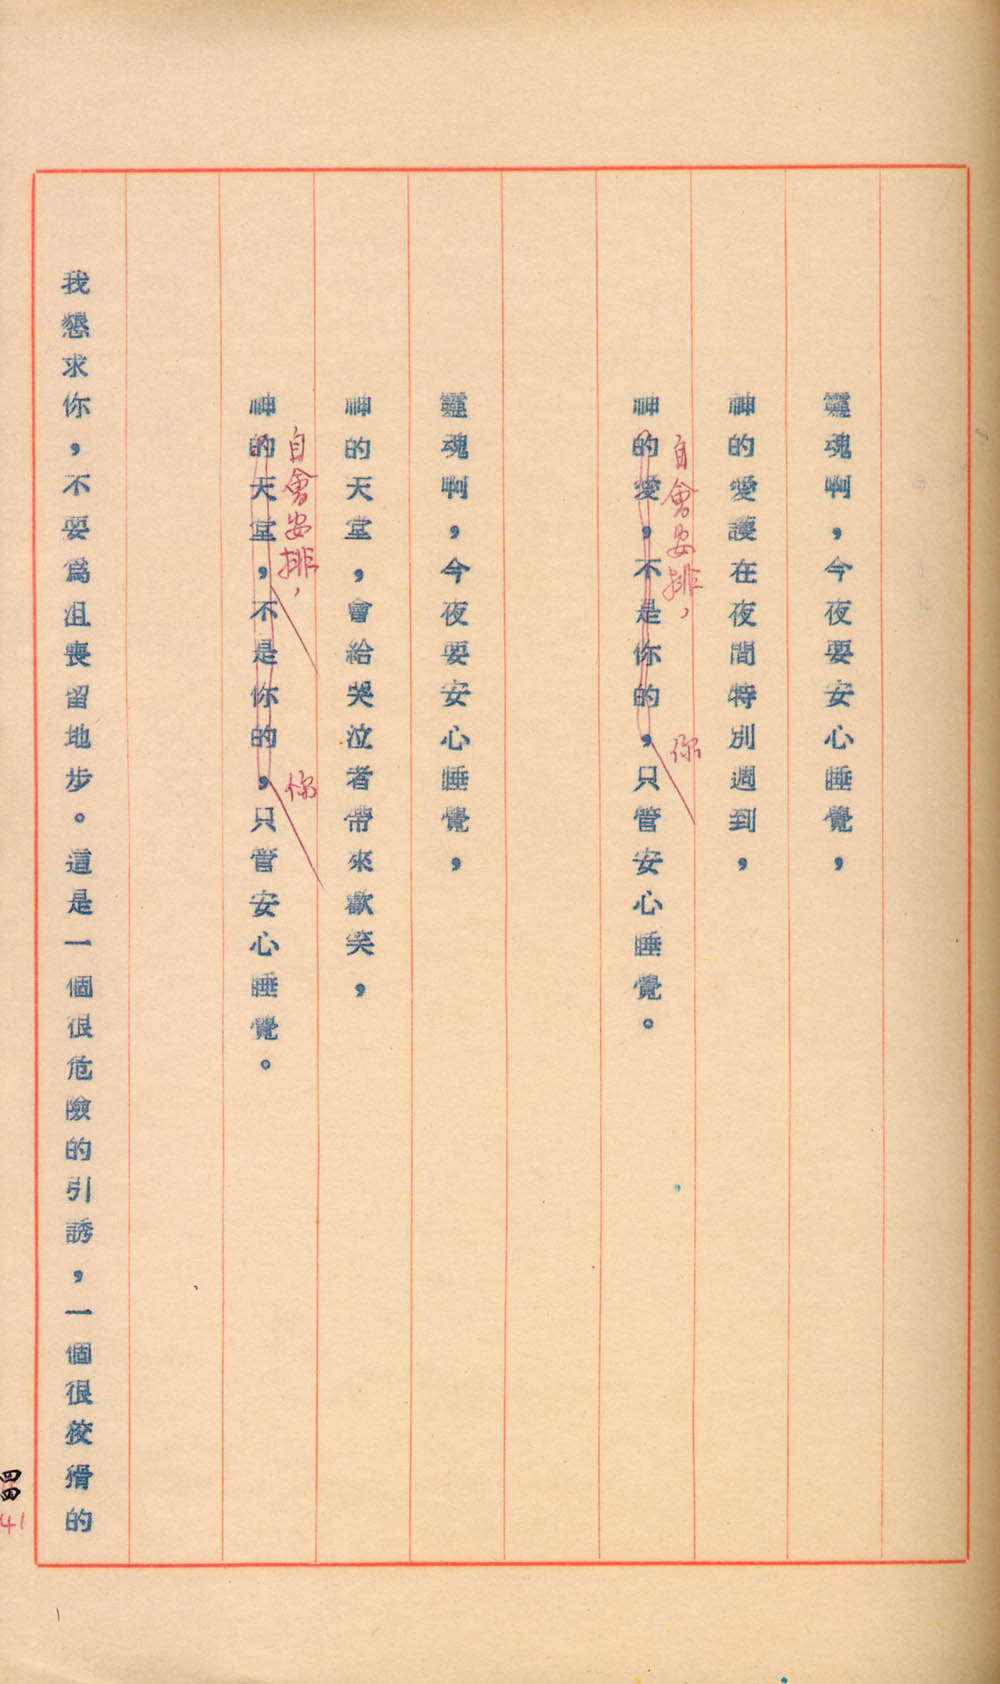 靈魂啊，今夜要安心睡覺，
神的愛護在夜間特別週到，
自會安排，你
神的愛，不是你的，只管安心睡覺。
靈魂啊，今夜要安心睡覺，
神的天堂，會給哭泣者帶來歡笑，
自會安排，你
神的天堂，不是你的，只管安心睡覺。
我懇求你，不要爲沮喪留地步。這是一個很危險的引誘，一個很狡猾的
四四
41